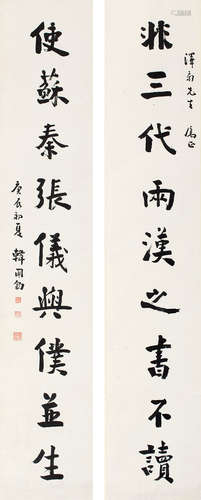 先生 屬正
非三代兩漢之書不讀
使蘇秦張儀與僕並生
庚辰初夏 韓國鈞